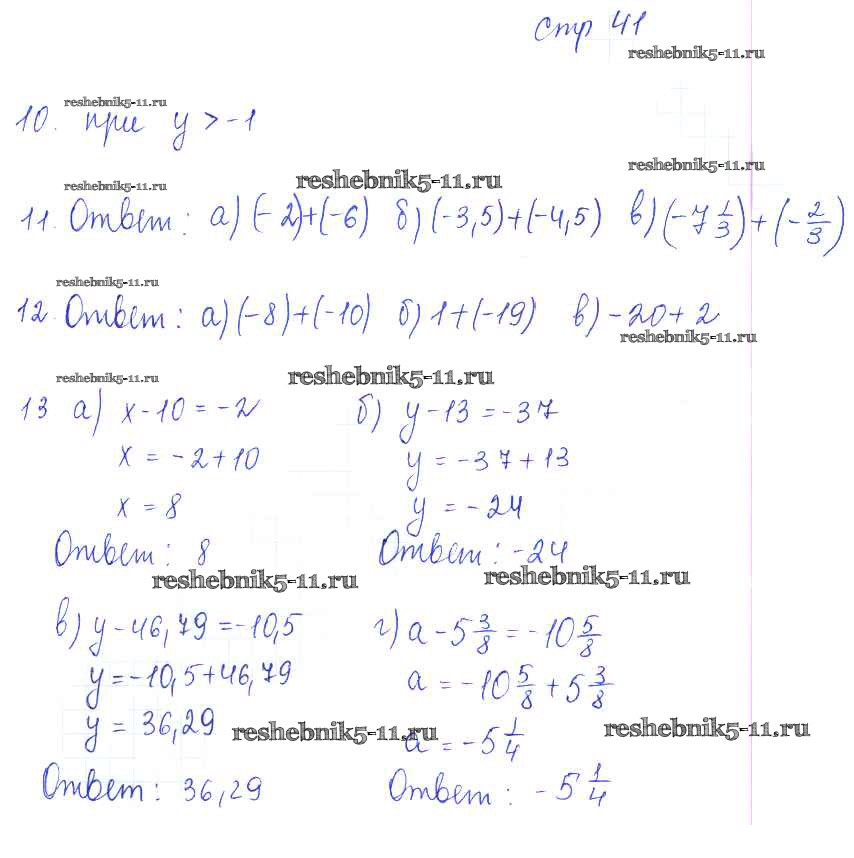 Стр 41
reshebnik5-11.ru
reshebnik5-11.ru
10. при y > -1
reshebnik5-11.ru
reshebnik5-11.ru
reshebnik5-11.ru
11. Ответ: а) (-2)+(-6) б) (-3,5)+(-4,5) в) (-7 1/3)+(-2/3)
reshebnik5-11.ru
12. Ответ: а) (-8)+(-10) б) 1+(-19) в) -20+2
reshebnik5-11.ru
reshebnik5-11.ru
reshebnik5-11.ru
13 а) x-10 = -2 б) y-13 = -37
x = -2+10 y = -37+13
x = 8 y = -24
Ответ: 8 Ответ: -24
reshebnik5-11.ru
reshebnik5-11.ru
в) y-46,79 = -10,5 г) a - 5 3/8 = -10 5/8
y = -10,5+46,79 a = -10 5/8 + 5 3/8
y = 36,29 a = -5 1/4
reshebnik5-11.ru
reshebnik5-11.ru
Ответ: 36,29 Ответ: -5 1/4